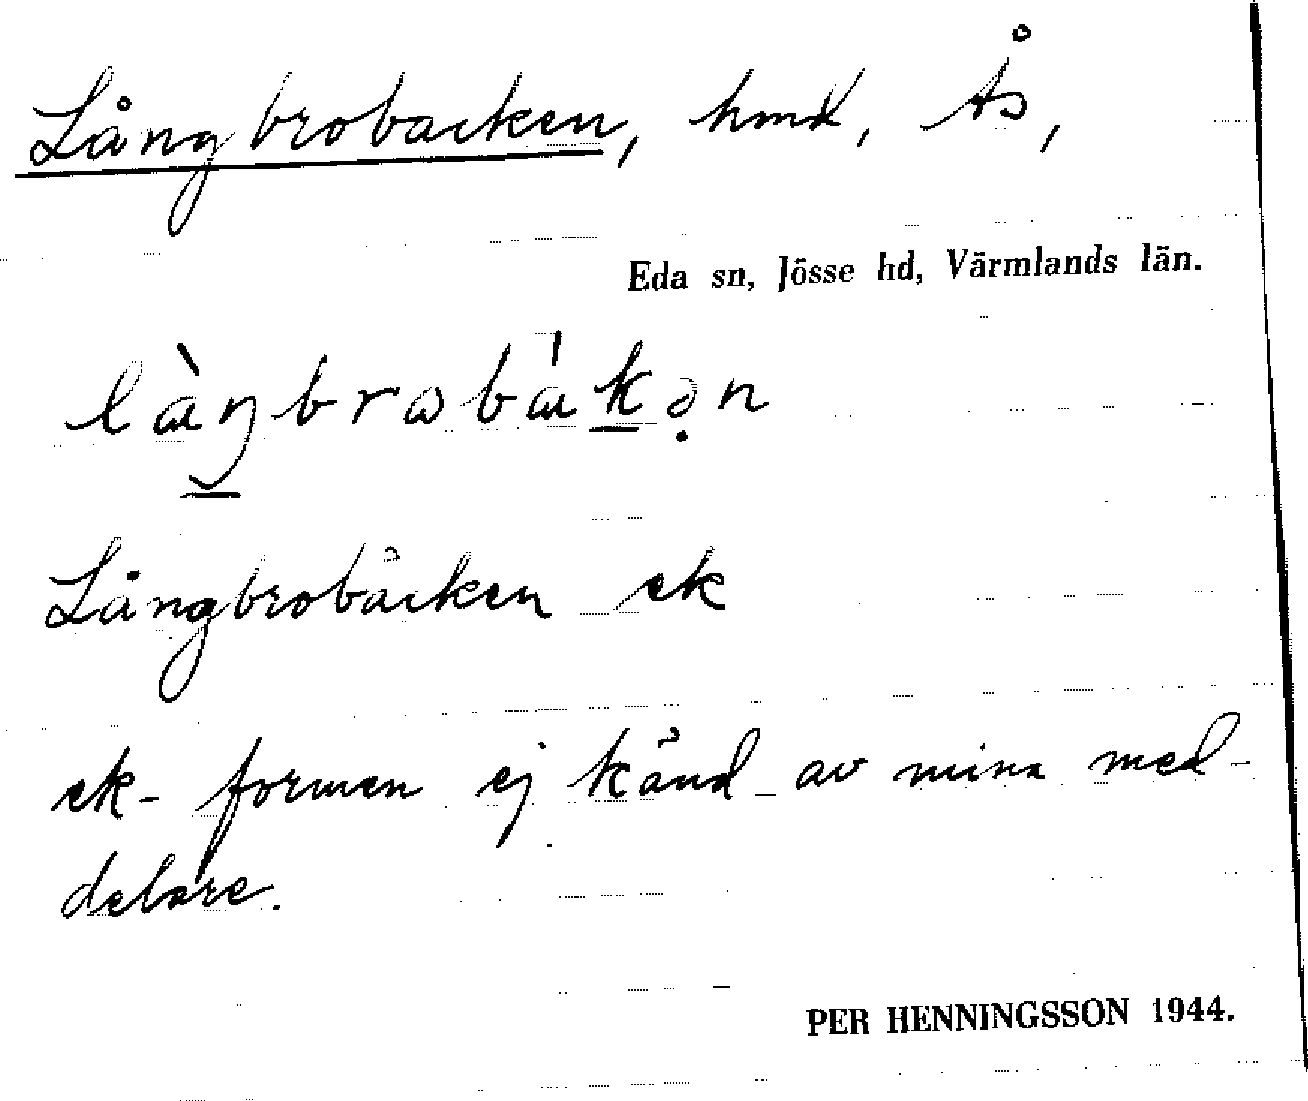 Långbrobacken, hmd, Ås,
Eda sn, Jösse hd, Värmlands län.
là̱ŋbrωbák̲ə̣n
Långbrobäcken ek
ek-formen ej känd av mina med-
delare.
PER HENNINGSSON 1944.